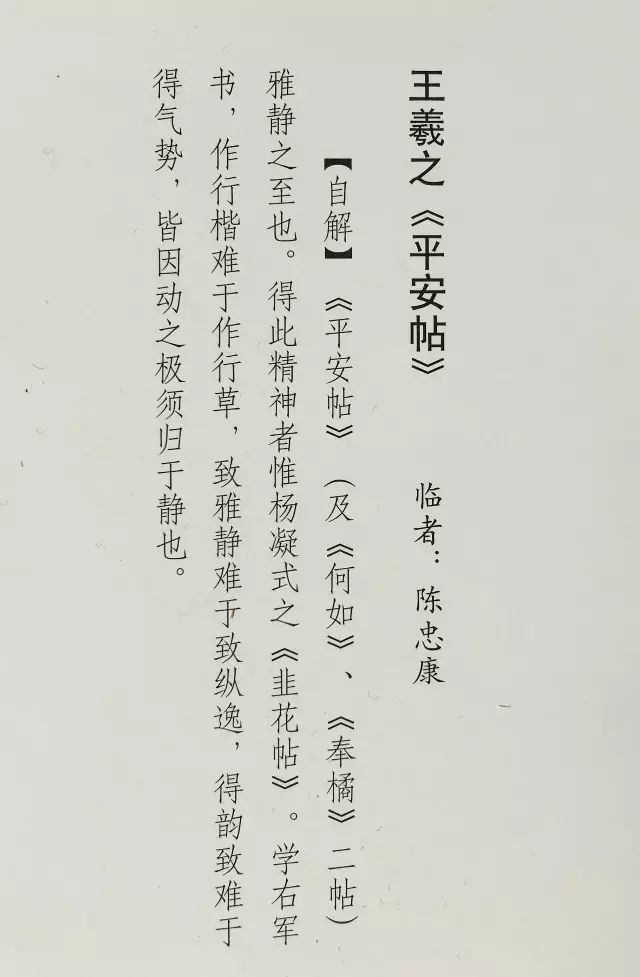 王羲之《平安帖》 临者：陈忠康
【自解】《平安帖》（及《何如》、《奉橘》二帖）
雅静之至也。得此精神者惟杨凝式之《韭花帖》。学右军
书，作行楷难于作行草，致雅静难于致纵逸，得韵致难于
得气势，皆因动之极须归于静也。